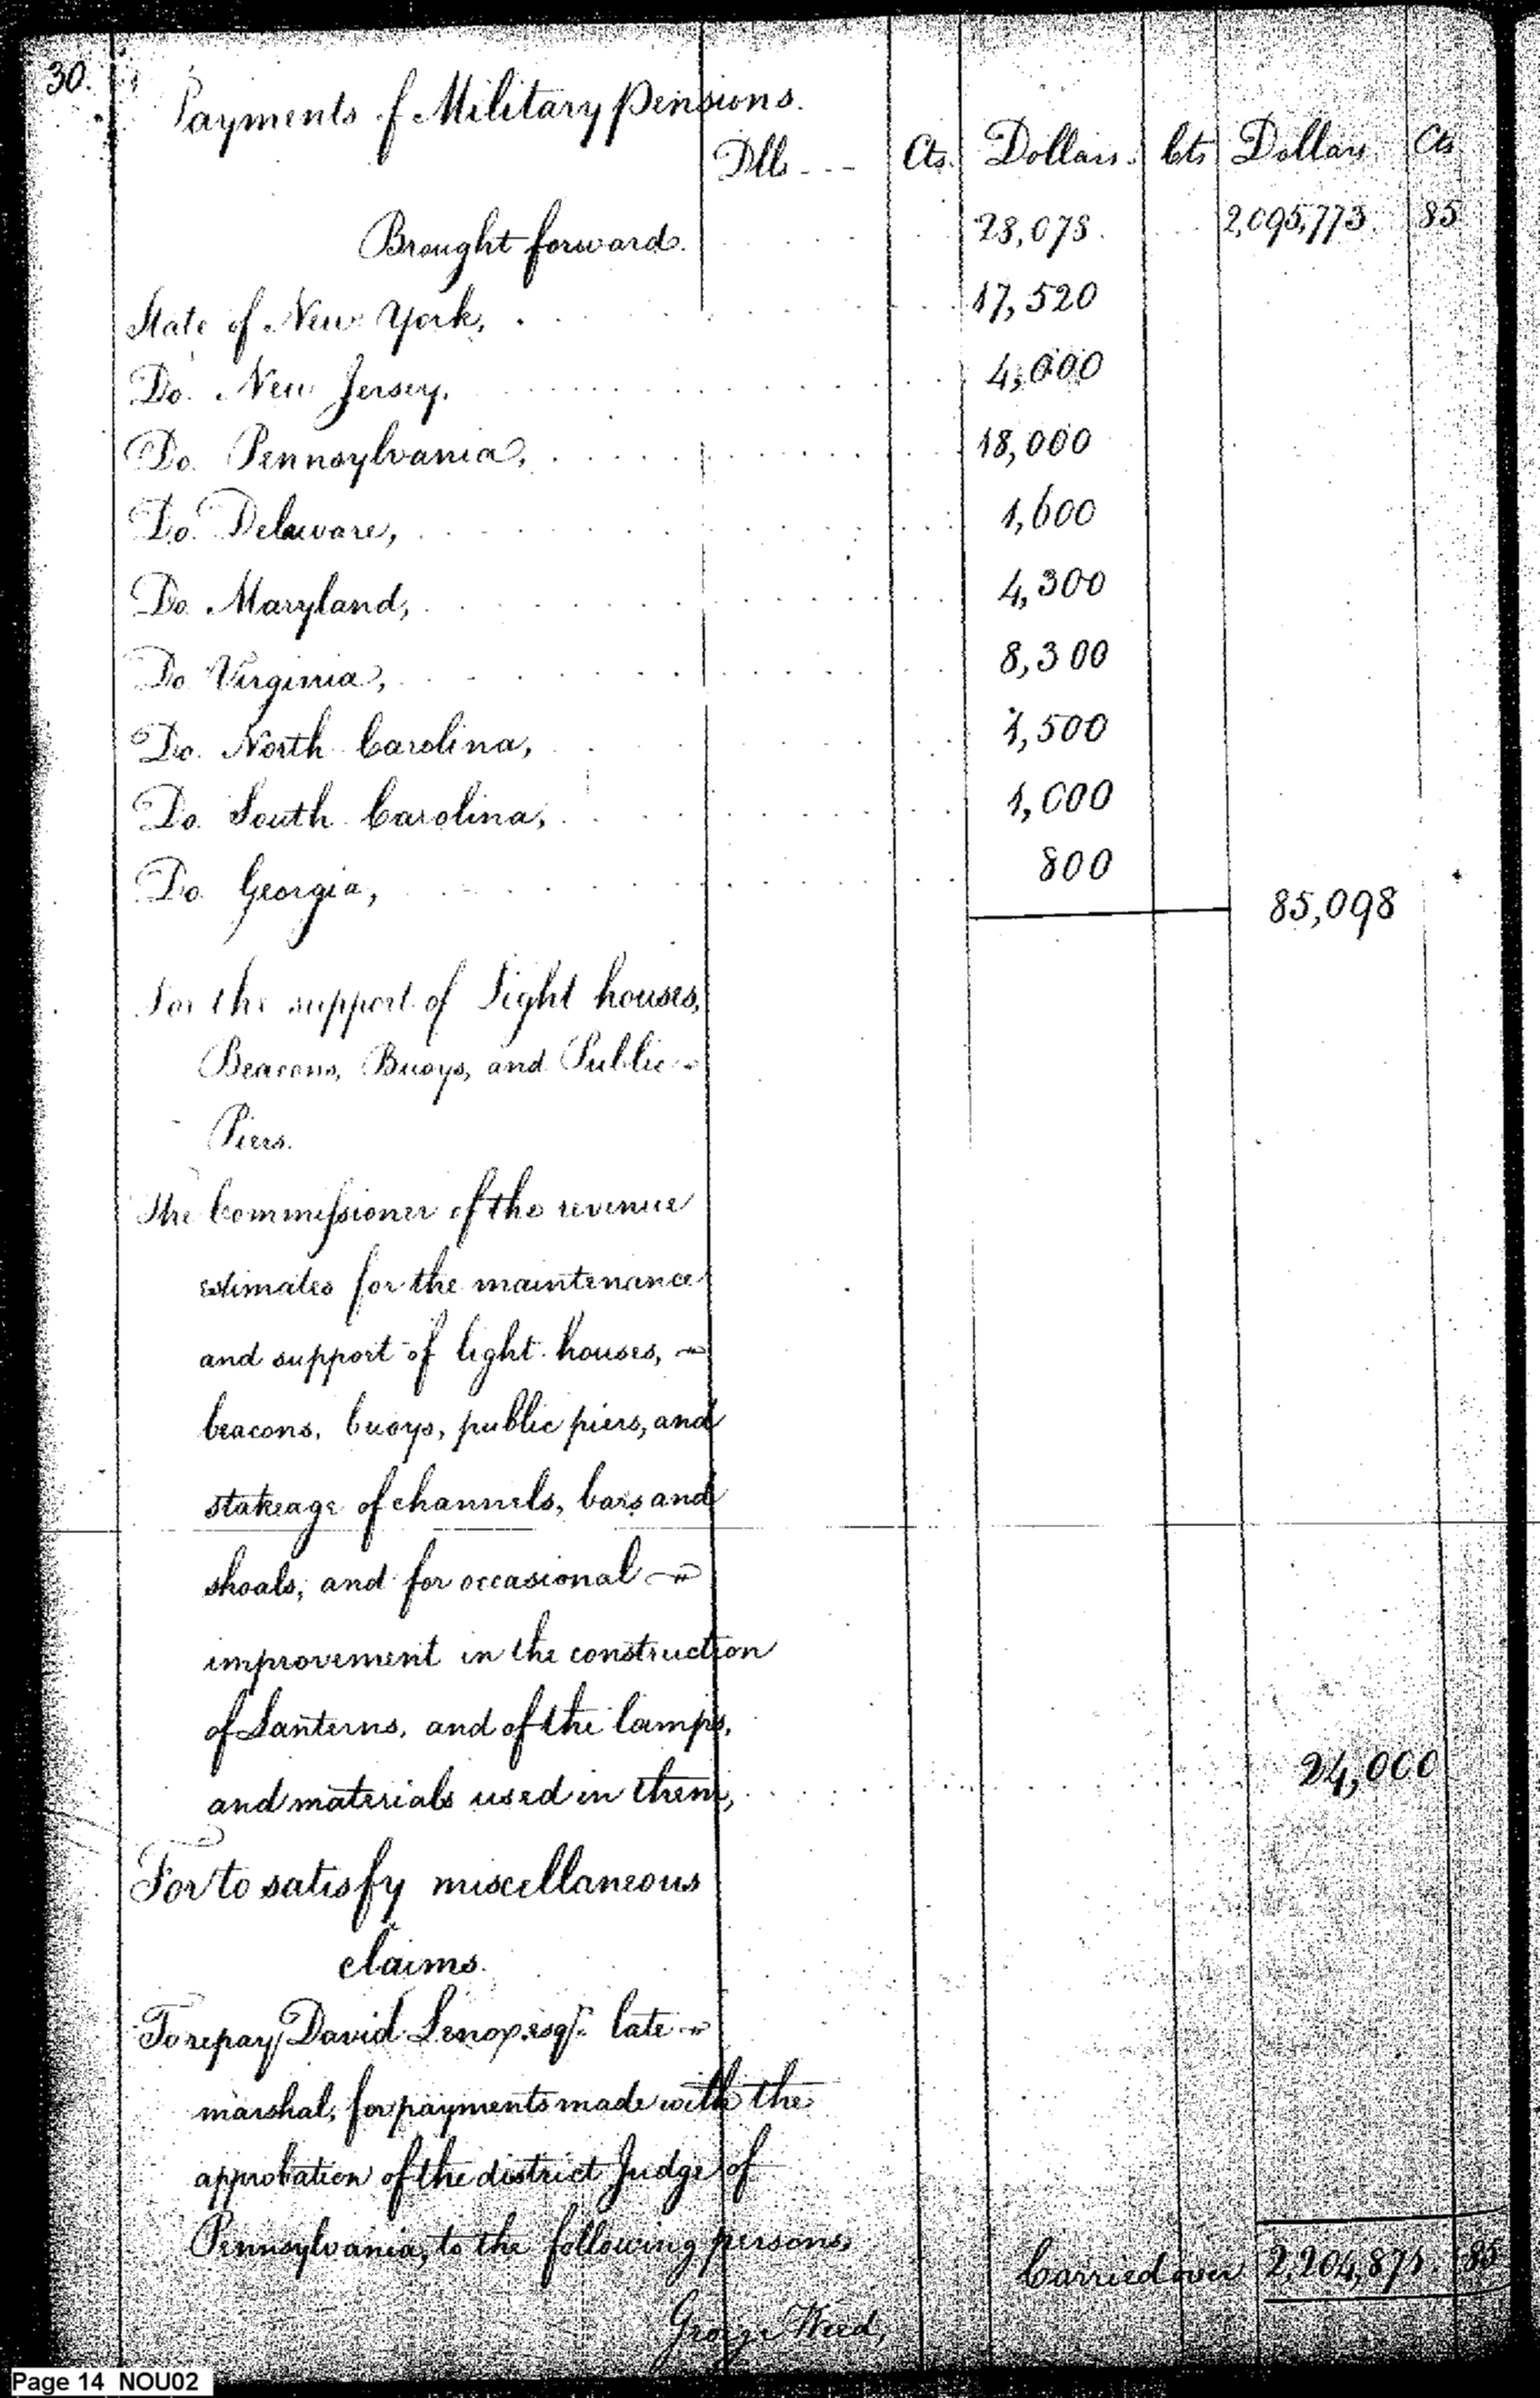 30.
Payments of Military pensions.
Dlls --- Cts. Dollars. Cts Dollars Cts
Brought forward. 28,078. 2,095,773. 85
State of New York, 17,520
Do. New Jersey, 4,000
Do. Pennsylvania, 18,000
Do. Delaware, 1,600
Do. Maryland, 4,300
Do Virginia, 8,300
Do. North Carolina, 1,500
Do. South Carolina, 1,000
Do. Georgia, 800
85,098
For the support of Light houses,
Beacons, Buoys, and Public
Piers.
The Commissioner of the revenue
estimates for the maintenance
and support of light houses,
beacons, buoys, public piers, and
stakeage of channels, bars and
shoals, and for occasional
improvement in the construction
of Lanterns, and of the lamps,
and materials used in them, 24,000
For to satisfy miscellaneous
claims.
To repay David Lenox, esqr. late
marshal, for payments made with the
approbation of the district Judge of
Pennsylvania, to the following persons,
Carried over 2,204,871. 85
George Weed,
Page 14 NOU02